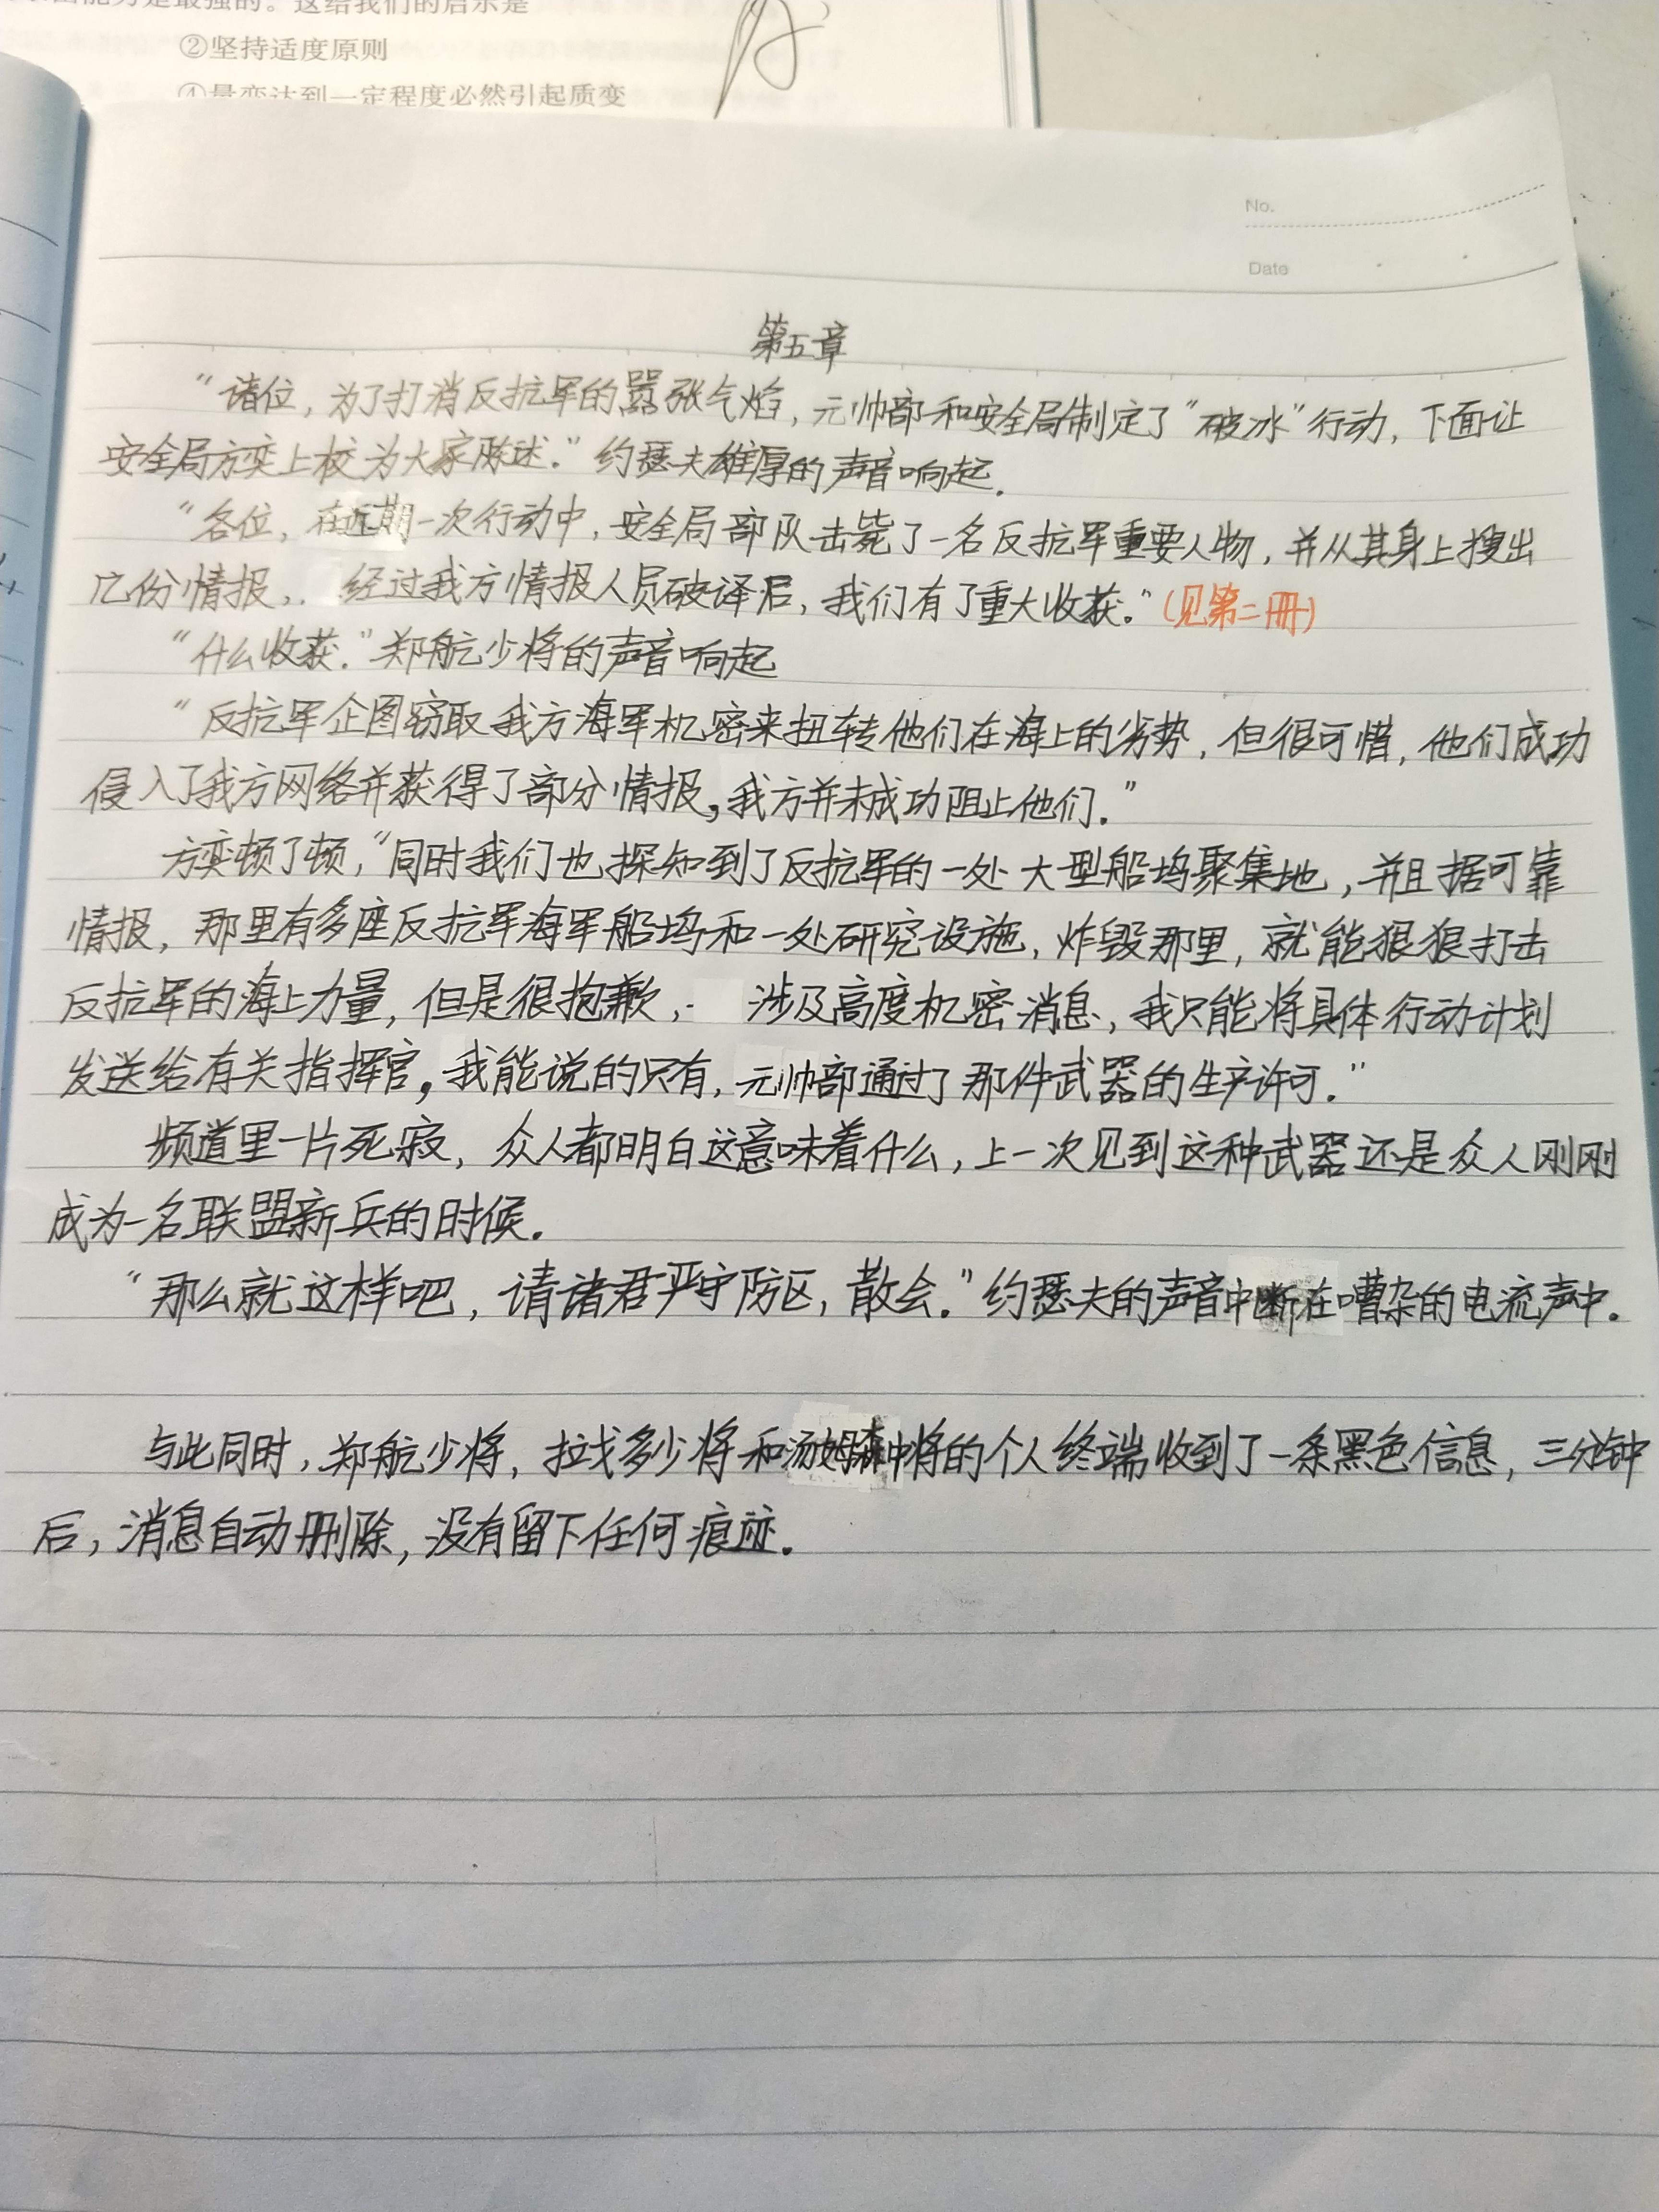 ②坚持适度原则
④量变达到一定程度必然引起质变
No.
Date
第五章
“诸位，为了打消反抗军的嚣张气焰，元帅部和安全局制定了“破冰”行动，下面让
安全局方奕上校为大家陈述.”约瑟夫雄厚的声音响起.
“各位，在近期一次行动中，安全局部队击毙了一名反抗军重要人物，并从其身上搜出
几份情报，经过我方情报人员破译后，我们有了重大收获.”(见第二册)
“什么收获.”郑航少将的声音响起
“反抗军企图窃取我方海军机密来扭转他们在海上的劣势，但很可惜，他们成功
侵入了我方网络并获得了部分情报，我方并未成功阻止他们.”
方奕顿了顿，“同时我们也探知到了反抗军的一处大型船坞聚集地，并且据可靠
情报，那里有多座反抗军海军船坞和一处研究设施，炸毁那里，就能狠狠打击
反抗军的海上力量，但是很抱歉，涉及高度机密消息，我只能将具体行动计划
发送给有关指挥官，我能说的只有，元帅部通过了那件武器的生产许可.”
频道里一片死寂，众人都明白这意味着什么，上一次见到这种武器还是众人刚刚
成为一名联盟新兵的时候.
“那么就这样吧，请诸君严守防区，散会.”约瑟夫的声音中断在嘈杂的电流声中.
与此同时，郑航少将，拉戈多少将和汤姆森中将的个人终端收到了一条黑色信息，三分钟
后，消息自动删除，没有留下任何痕迹.